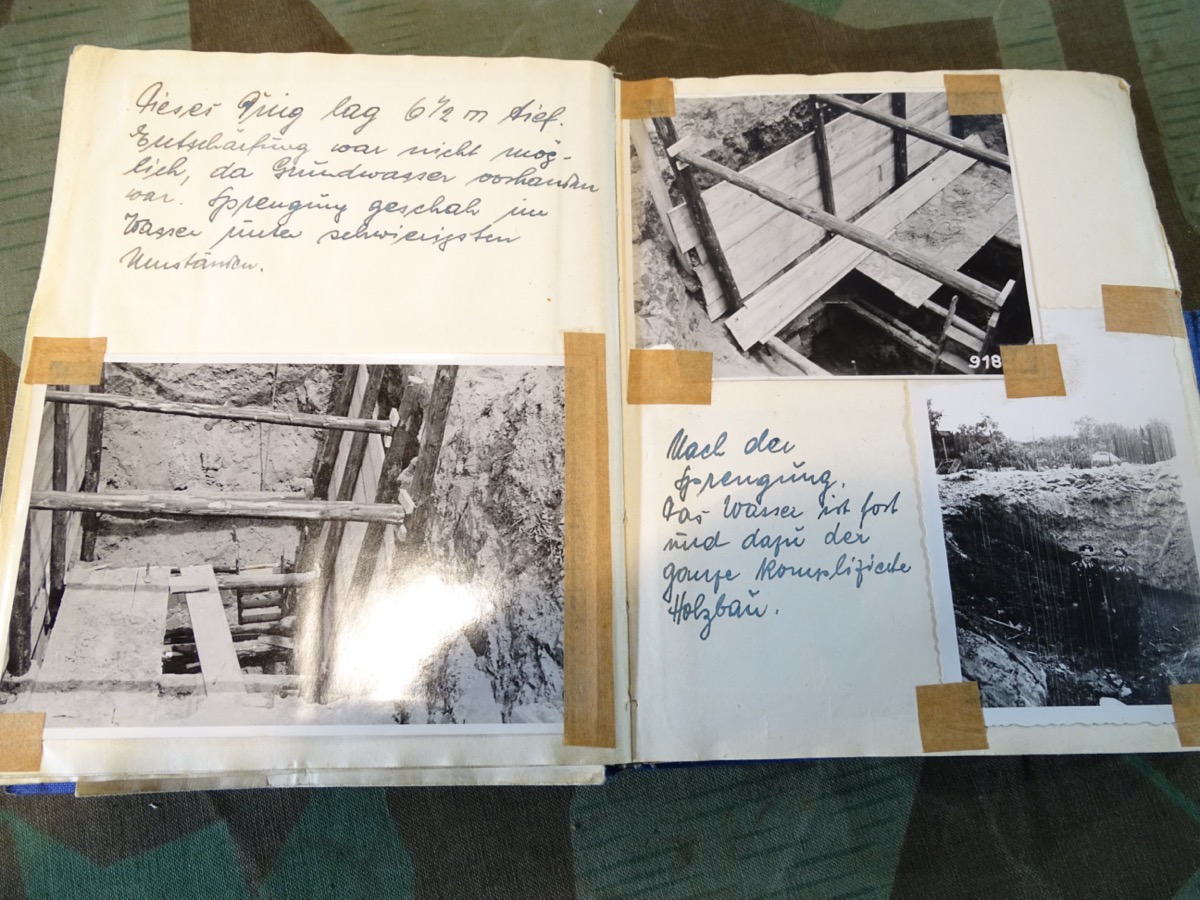 Dieses Ding lag 6 1/2 m tief.
Entschärfung war nicht mög-
lich, da Grundwasser vorhanden
war. Sprengung geschah im
Wasser unter schwierigsten
Umständen.
918
Nach der
Sprengung.
Das Wasser ist fort
und dazu der
ganze komplizierte
Holzbau.